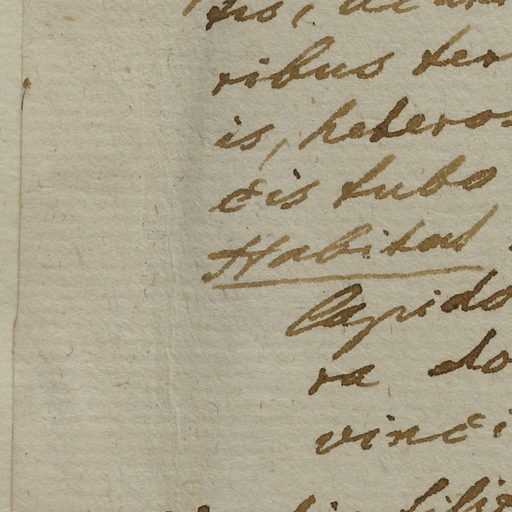 ribus ter
is, hetero
cis tubo
Habitat
lapido
ra do
vinci